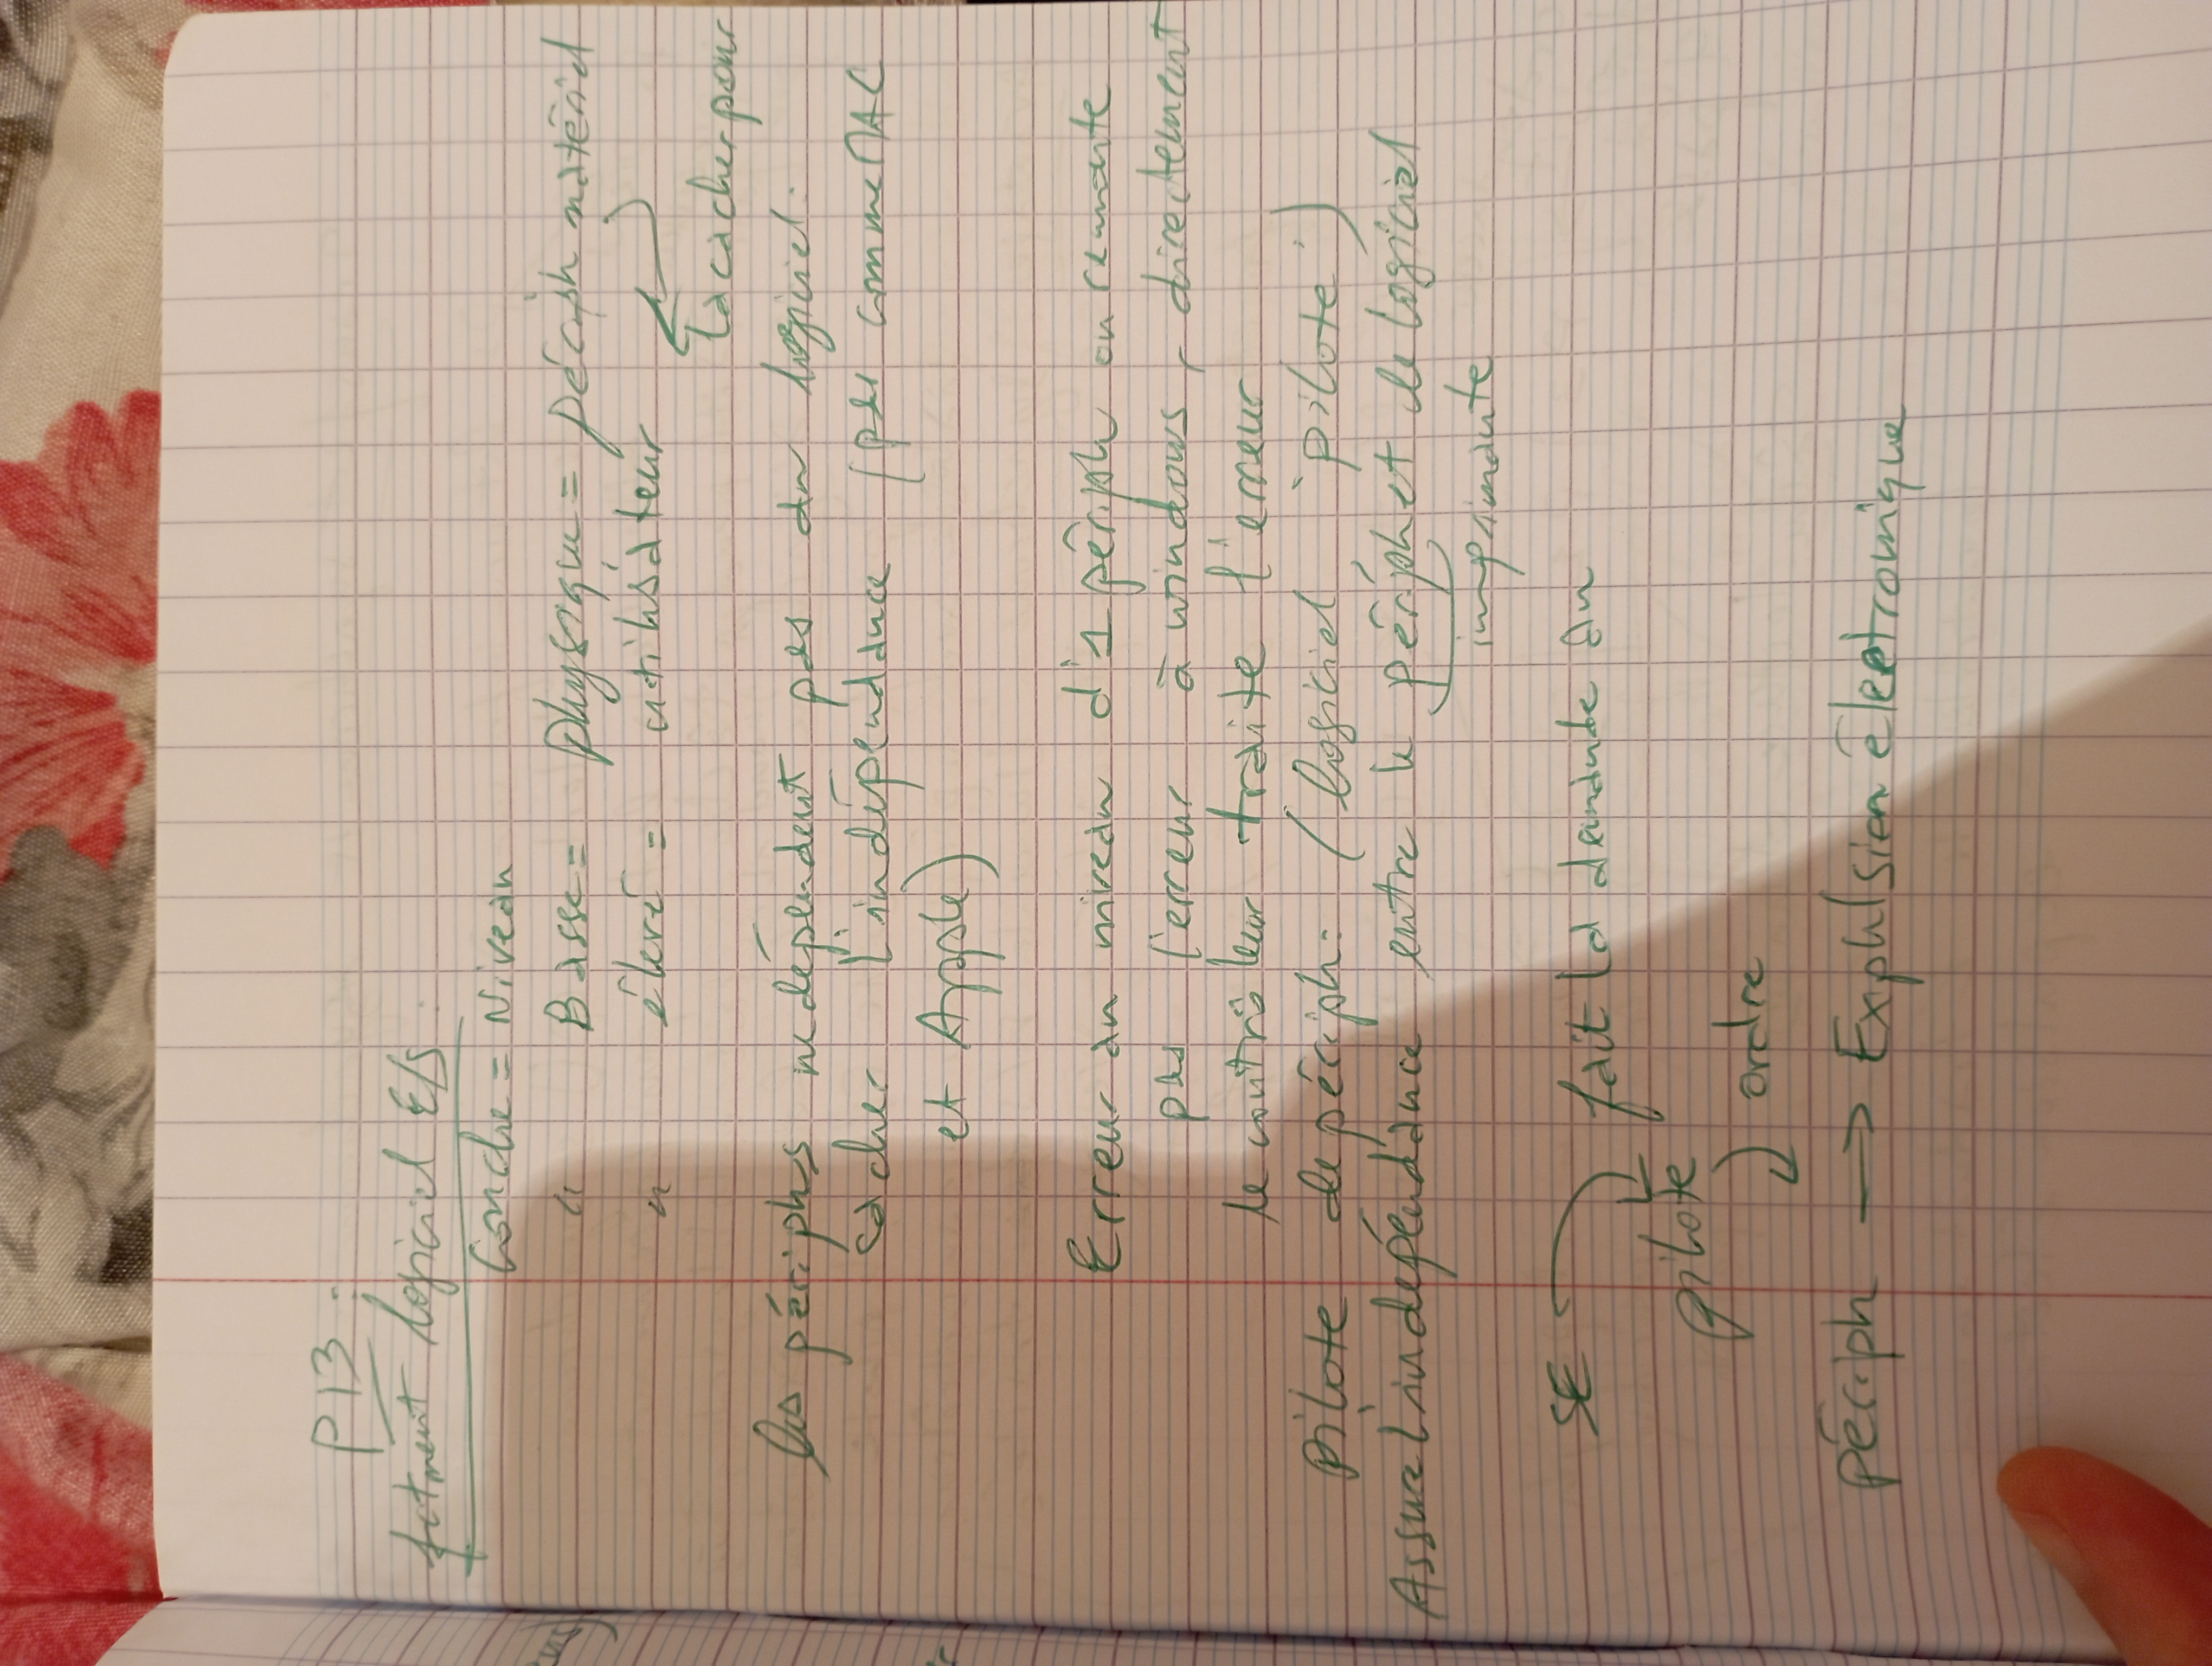 P13 :
fctment logiciel E/S :
Couche = Niveau
" Basse = physique = périph matériel
" élevé = utilisateur
la cacher pour
les périphs ne dépendent pas du logiciel.
cacher l'indépendance (pas comme MAC
et Apple)
Erreur au niveau d'1 périph on remonte
pas l'erreur à windows, directement
le contrôleur traite l'erreur
pilote de périph : (logiciel 'pilote')
Assure l'indépendance entre le périph et le logiciel
imprimante
SE fait la demande au
pilote
ordre
périph → Explulsion électronique